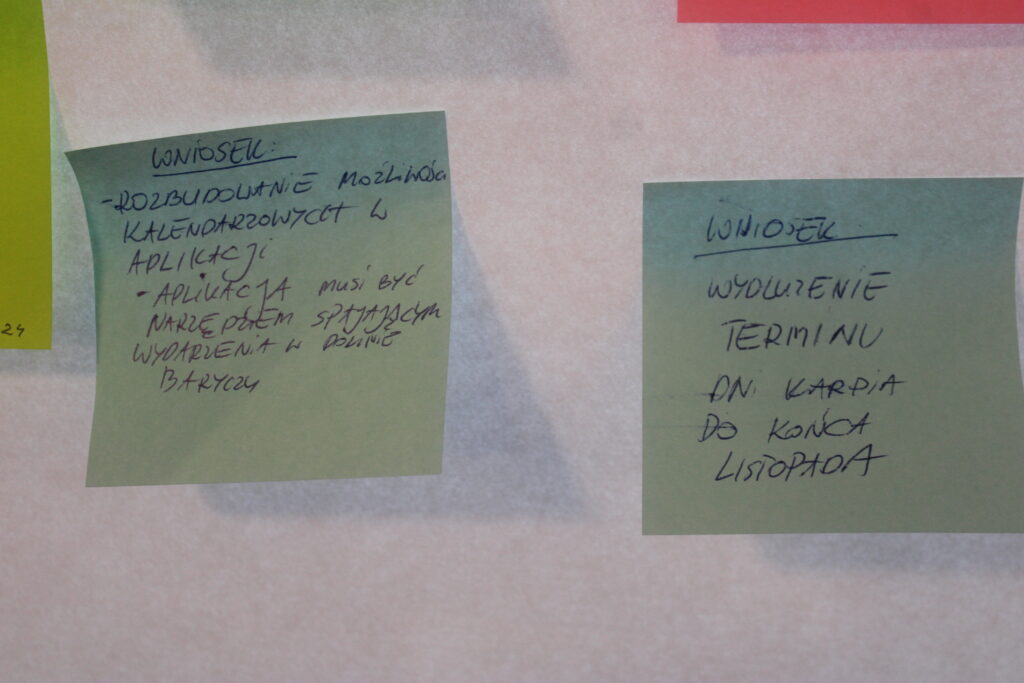 24
WNIOSEK:
- ROZBUDOWANIE MOŻLIWOŚCI
KALENDARZOWYCH W
APLIKACJI
- APLIKACJA MUSI BYĆ
NARZĘDZIEM SPAJAJĄCYM
WYDARZENIA W DOLINIE
BARYCZY
WNIOSEK
WYDŁUŻENIE
TERMINU
DNI KARPIA
DO KOŃCA
LISTOPADA